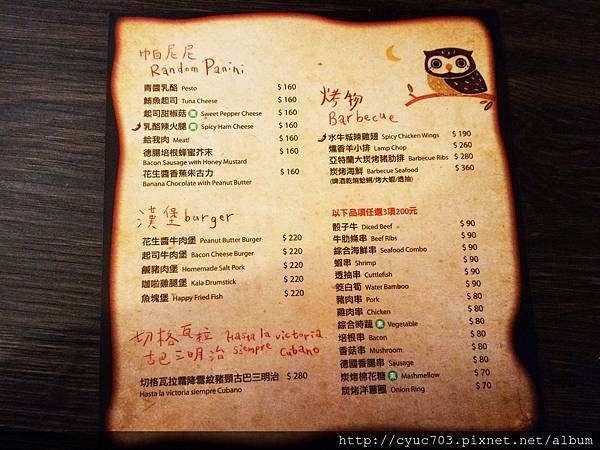 帕尼尼
Random Panini
青醬乳酪 Pesto $ 160
鮪魚起司 Tuna Cheese $ 160
起司甜椒菇 素 Sweet Pepper Cheese $ 160
乳酪辣火腿 素 Spicy Ham Cheese $ 160
給我肉 Meat! $ 160
德腸培根蜂蜜芥末 $ 160
Bacon Sausage with Honey Mustard
花生醬香蕉朱古力 $ 160
Banana Chocolate with Peanut Butter
漢堡 burger
花生醬牛肉堡 Peanut Butter Burger $ 220
起司牛肉堡 Bacon Cheese Burger $ 220
鹹豬肉堡 Homemade Salt Pork $ 220
咖啦雞腿堡 Kala Drumstick $ 220
魚塊堡 Happy Fried Fish $ 220
切格瓦拉 Hasta la victoria
古巴三明治 siempre Cubano
切格瓦拉霜降雪紋豬頸古巴三明治 $ 280
Hasta la victoria siempre Cubano
烤物
Barbecue
水牛城辣雞翅 Spicy Chicken Wings $ 190
燻香羊小排 Lamp Chop $ 260
亞特蘭大炭烤豬肋排 Barbecue Ribs $ 280
炭烤海鮮 Barbecue Seafood $ 360
(啤酒乾燒蛤蜊/烤大蝦/透抽)
以下品項任選3項200元
骰子牛 Diced Beef $ 90
牛肋條串 Beef Ribs $ 90
綜合海鮮串 Seafood Combo $ 90
蝦串 Shrimp $ 90
透抽串 Cuttlefish $ 90
筊白筍 Water Bamboo $ 90
豬肉串 Pork $ 80
雞肉串 Chicken $ 80
綜合時蔬 素 Vegetable $ 80
培根串 Bacon $ 80
香菇串 Mushroom $ 80
德國香腸串 Sausage $ 80
炭烤棉花糖 素 Mashmellow $ 70
炭烤洋蔥圈 Onion Ring $ 70
http://cyuc703.pixnet.net/album